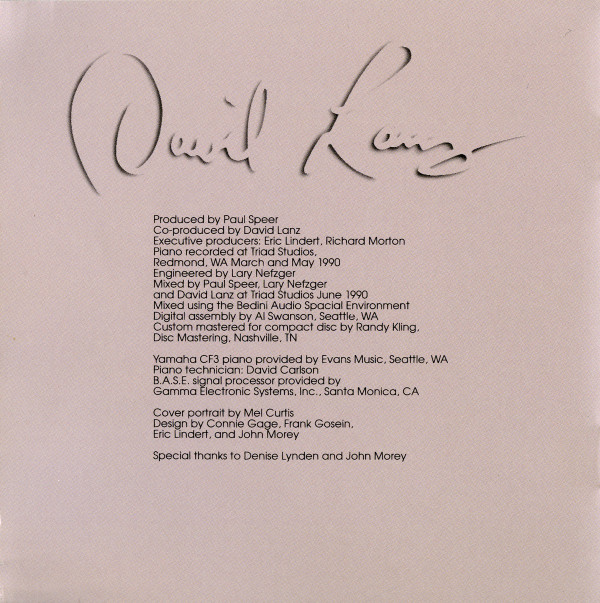 David Lanz
Produced by Paul Speer
Co-produced by David Lanz
Executive producers: Eric Lindert, Richard Morton
Piano recorded at Triad Studios,
Redmond, WA March and May 1990
Engineered by Lary Nefzger
Mixed by Paul Speer, Lary Nefzger
and David Lanz at Triad Studios June 1990
Mixed using the Bedini Audio Spacial Environment
Digital assembly by Al Swanson, Seattle, WA
Custom mastered for compact disc by Randy Kling,
Disc Mastering, Nashville, TN
Yamaha CF3 piano provided by Evans Music, Seattle, WA
Piano technician: David Carlson
B.A.S.E. signal processor provided by
Gamma Electronic Systems, Inc., Santa Monica, CA
Cover portrait by Mel Curtis
Design by Connie Gage, Frank Gosein,
Eric Lindert, and John Morey
Special thanks to Denise Lynden and John Morey